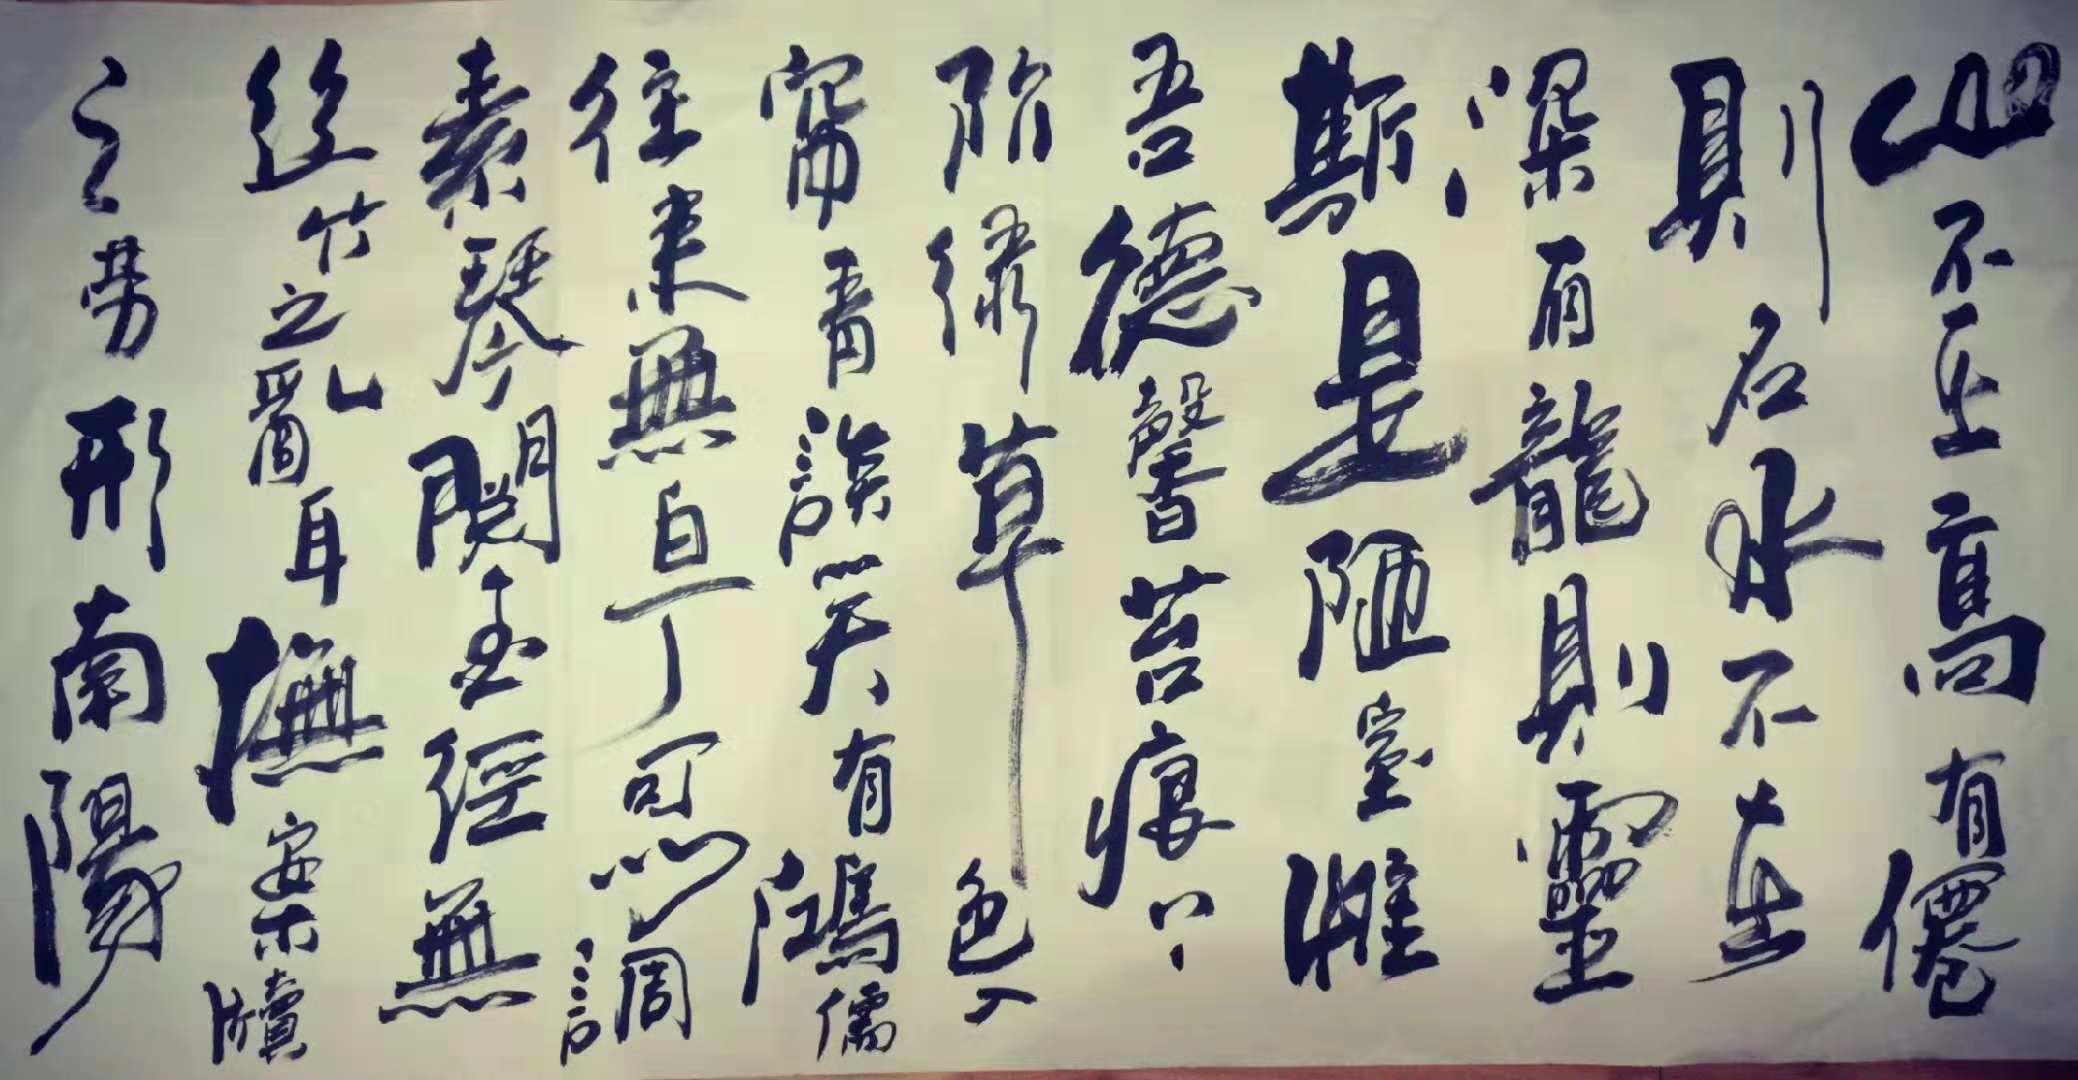 山不在高有僊
則名水不在
深有龍則靈
斯是陋室惟
吾德馨苔痕上
階綠草色入
帘青談笑有鴻儒
往來無白丁可以調
素琴閱金經無
丝竹之亂耳撫案牘
之勞形南陽